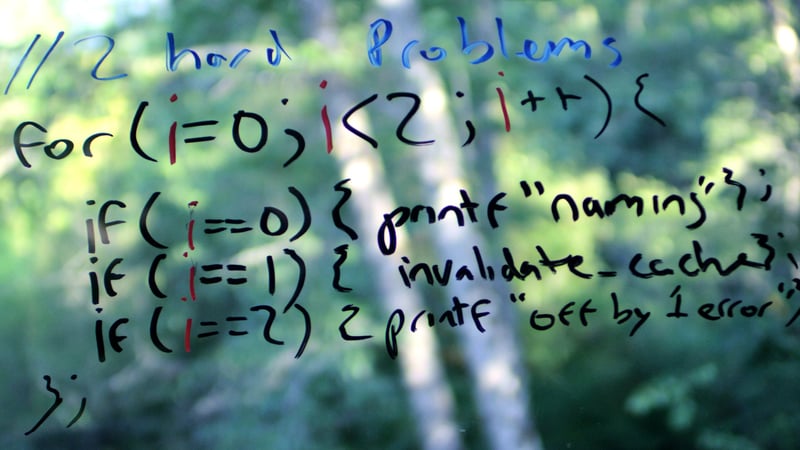 // 2 hard Problems
for (i=0; i<2; i++) {
if (i==0) { printf "naming" };
if (i==1) { invalidate_cache };
if (i==2) { printf "off by 1 error" }
};